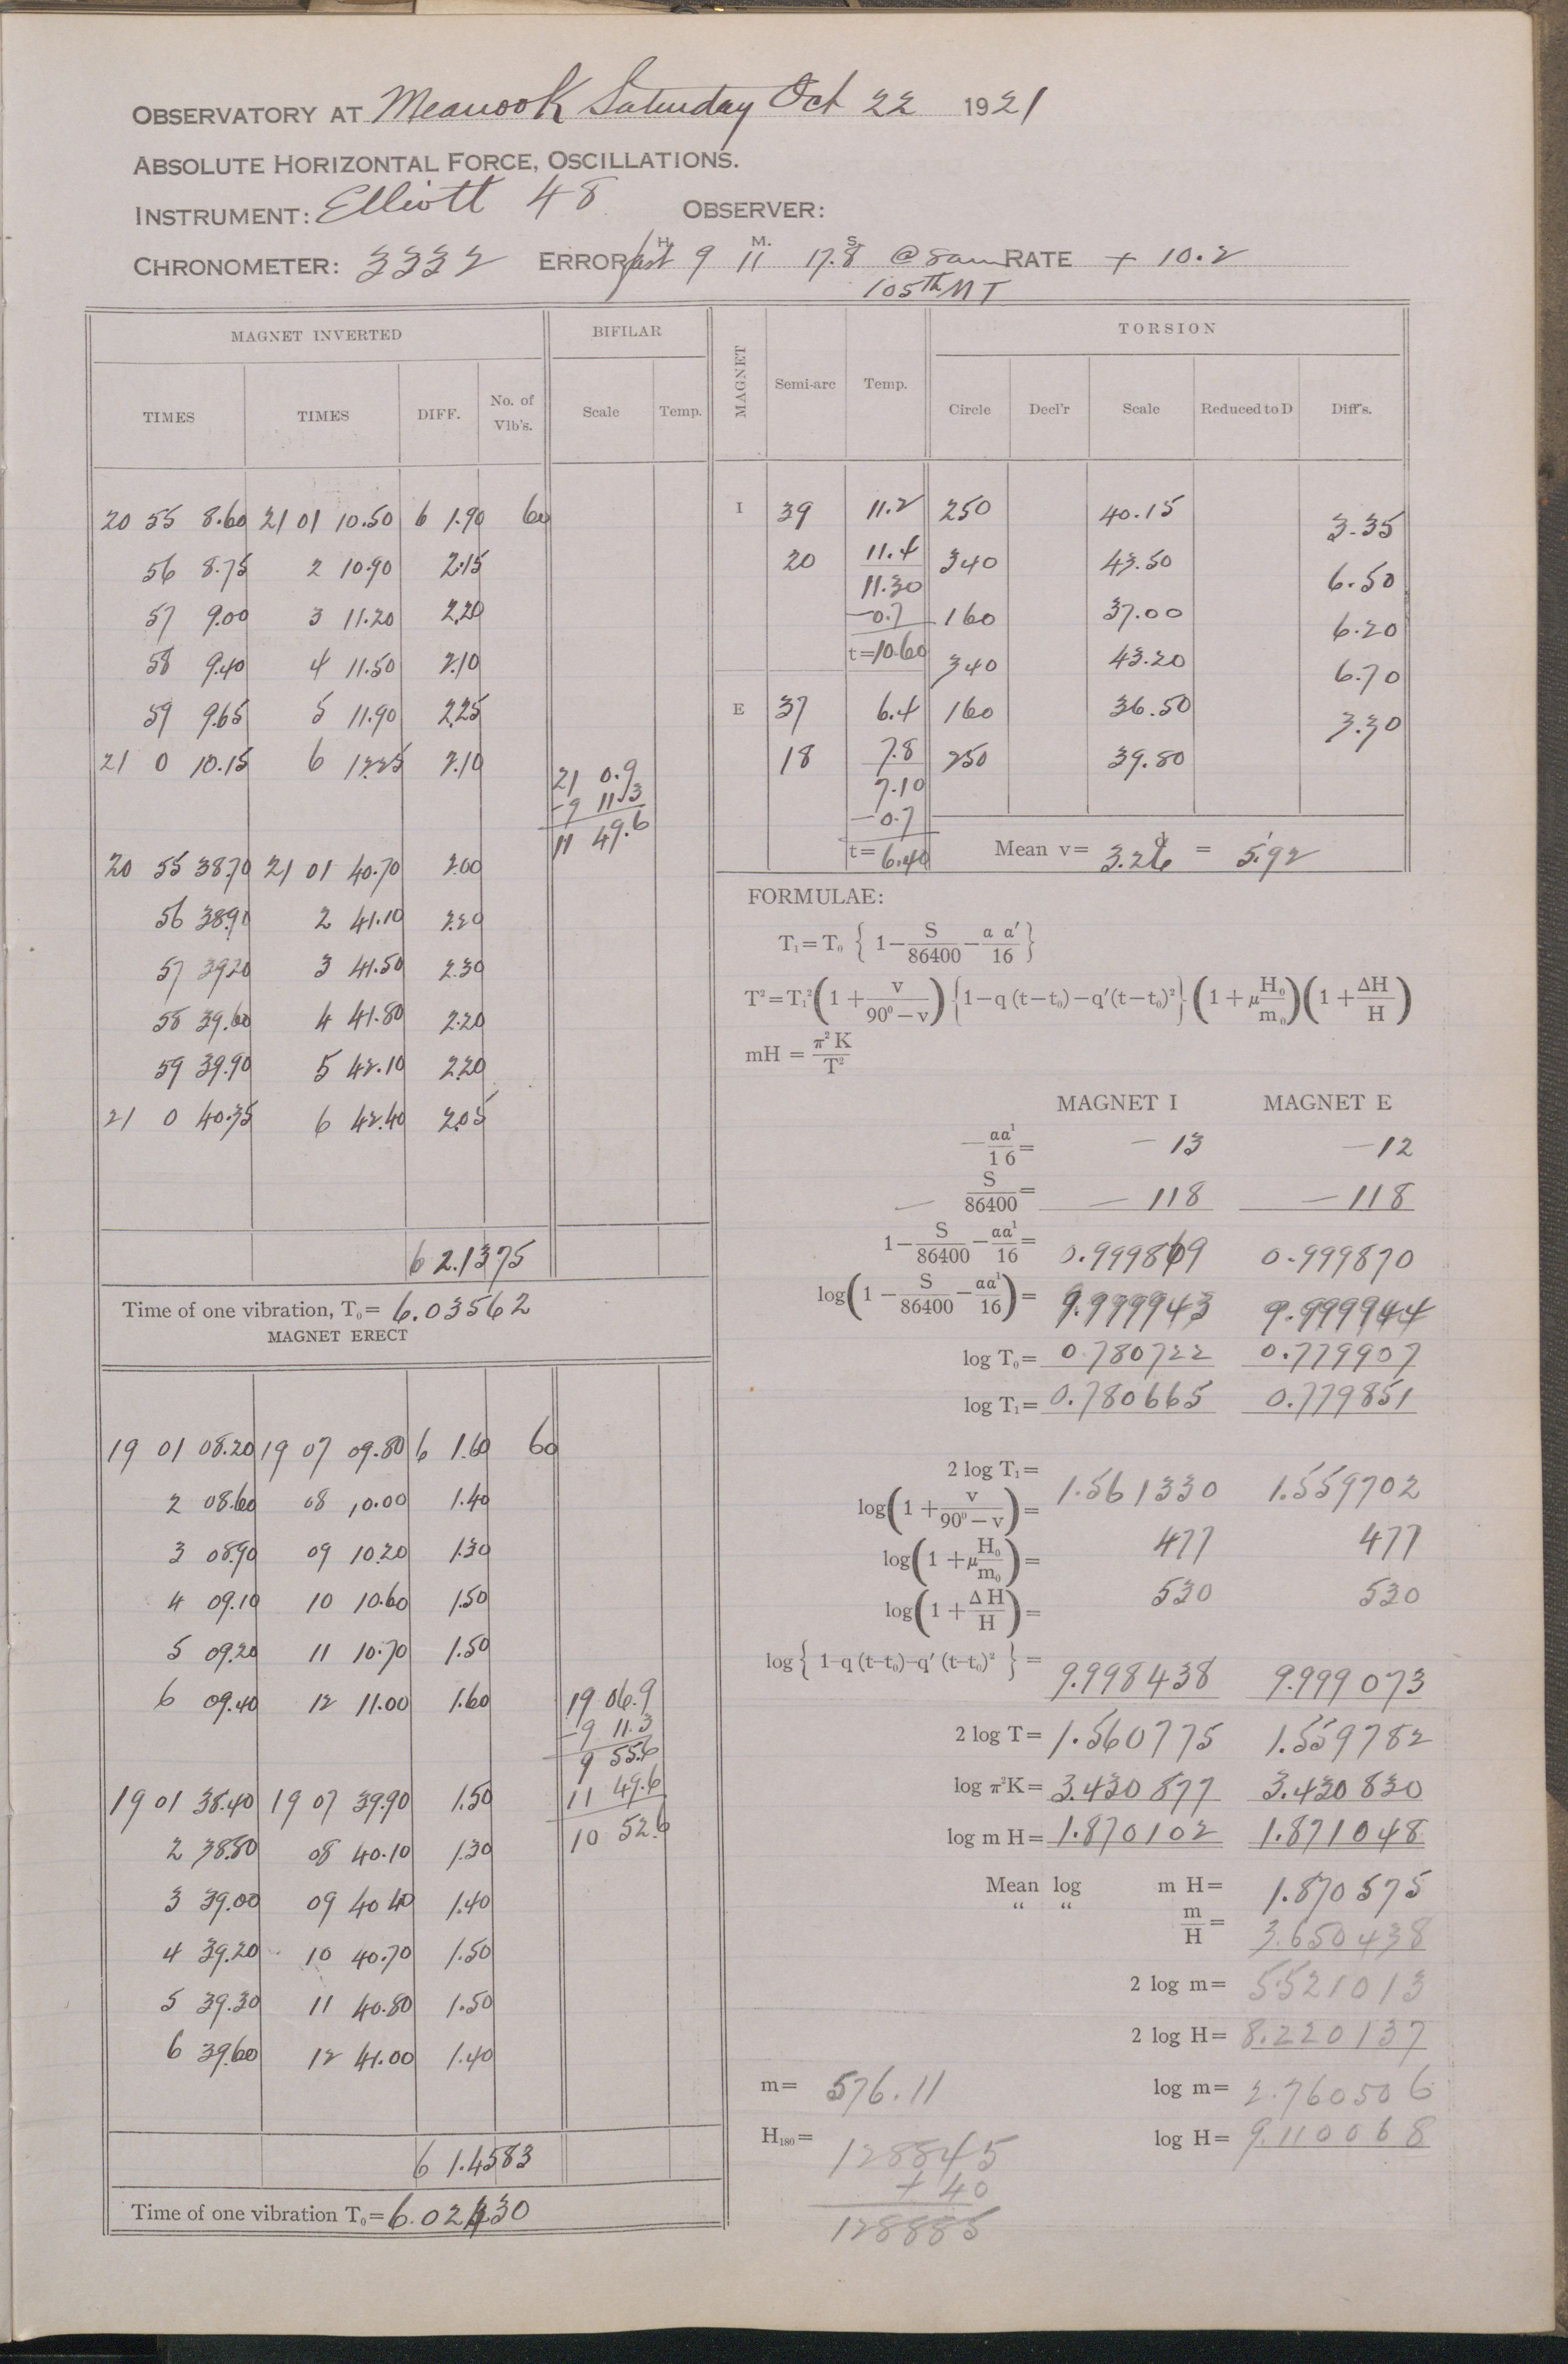 OBSERVATORY AT Meanook Saturday Oct 22 1921
ABSOLUTE HORIZONTAL FORCE, OSCILLATIONS.
INSTRUMENT: Elliott 48 OBSERVER:
H. M. S.
CHRONOMETER: 3332 ERROR fast 9 11 17.8 @ 8am RATE + 10.2
105th MT
MAGNET INVERTED BIFILAR
TIMES TIMES DIFF. No. of Vib's. Scale Temp.
20 55 8.60 21 01 10.50 6 1.90 60
56 8.75 2 10.90 2.15
57 9.00 3 11.20 2.20
58 9.40 4 11.50 2.10
59 9.65 5 11.90 2.25
21 0 10.15 6 12.25 2.10
21 0.9
-9 11.3
11 49.6
20 55 38.70 21 01 40.70 2.00
56 38.90 2 41.10 2.20
57 39.20 3 41.50 2.30
58 39.60 4 41.80 2.20
59 39.90 5 42.10 2.20
21 0 40.35 6 42.40 2.05
6 2.1375
Time of one vibration, T₀= 6.03562
MAGNET ERECT
19 01 08.20 19 07 09.80 6 1.60 60
2 08.60 08 10.00 1.40
3 08.90 09 10.20 1.30
4 09.10 10 10.60 1.50
5 09.20 11 10.70 1.50
6 09.40 12 11.00 1.60
19 06.9
-9 11.3
9 55.6
11 49.6
10 52.6
19 01 38.40 19 07 39.90 1.50
2 38.80 08 40.10 1.30
3 39.00 09 40.40 1.40
4 39.20 10 40.70 1.50
5 39.30 11 40.80 1.50
6 39.60 12 41.00 1.40
6 1.4583
Time of one vibration T₀= 6.02430
MAGNET Semi-arc Temp. TORSION
Circle Decl'r Scale Reduced to D Diff's.
I 39 11.2 250 40.15
3.35
20 11.4 340 43.50
11.30 6.50
-0.7 160 37.00
6.20
t=10.60 340 43.20
6.70
E 37 6.4 160 36.50
3.30
18 7.8 250 39.80
7.10
-0.7
t= 6.40 Mean v= 3.26 d = 5.'92
FORMULAE:
T₁=T₀ { 1 − S/86400 − a a′/16 }
T²=T₁² (1 + v/90⁰−v) {1−q (t−t₀)−q′(t−t₀)²} (1 + μ H₀/m₀) (1 + ΔH/H)
mH = π² K/T²
MAGNET I MAGNET E
− aa¹/16 = − 13 −12
− S/86400 = − 118 − 118
1 − S/86400 − aa¹/16 = 0.999869 0.999870
log(1 − S/86400 − aa¹/16) = 9.999943 9.999944
log T₀= 0.780722 0.779907
log T₁= 0.780665 0.779851
2 log T₁= 1.561330 1.559702
log(1 + v/90⁰−v) = 477 477
log(1 + μ H₀/m₀) = 530 530
log(1 + ΔH/H) =
log{ 1−q (t−t₀)−q′ (t−t₀)² } = 9.998438 9.999073
2 log T= 1.560775 1.559782
log π²K= 3.430877 3.430830
log m H= 1.870102 1.871048
Mean log m H= 1.870575
“ “ m/H = 3.650438
2 log m= 5.521013
2 log H= 8.220137
m= 576.11 log m= 2.760506
H₁₈₀= 128845 log H= 9.110068
+ 40
128885